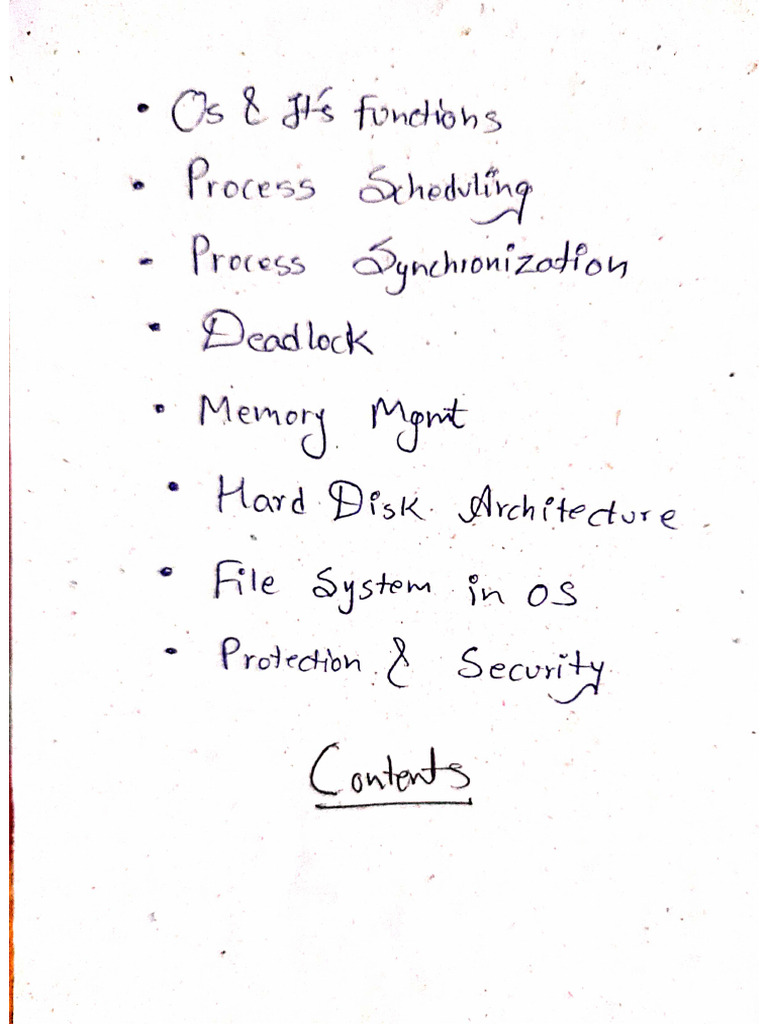 • Os & It's functions
• Process Scheduling
• Process Synchronization
• Deadlock
• Memory Mgmt
• Hard Disk Architecture
• File System in OS
• Protection & Security
Contents